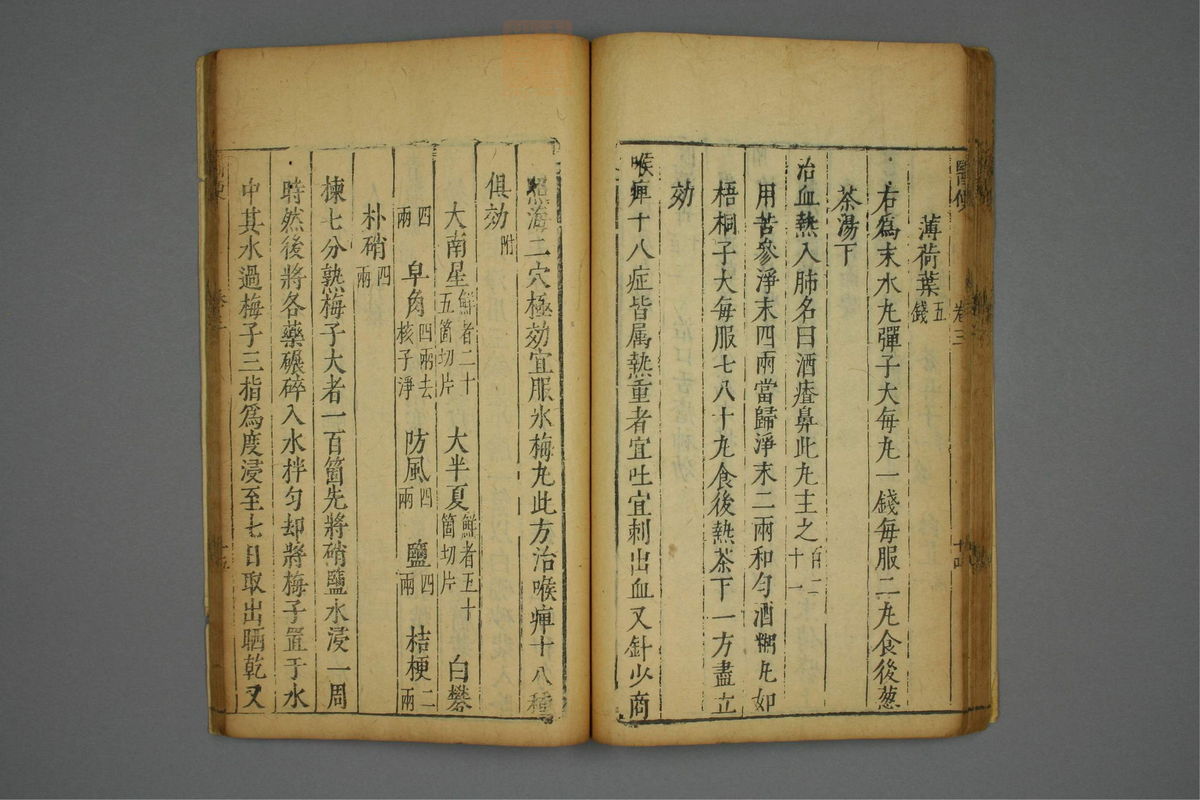 醫便
卷三
十四
薄荷葉五錢
右爲末水丸彈子大每丸一錢每服二丸食後葱
茶湯下
治血熱入肺名曰酒瘡鼻此丸主之百二十一
用苦參淨末四兩當歸淨末二兩和勻酒糊丸如
梧桐子大每服七八十丸食後熱茶下一方盡立
効
喉痺十八症皆属熱重者宜吐宜刺出血又針少商
照海二穴極効宜服氷梅丸此方治喉痺十八種
俱効附
大南星鮮者二十五箇切片 大半夏鮮者五十箇切片 白礬
四兩 皁角四兩去核子淨 防風四兩 鹽四兩 桔梗二兩
朴硝四兩
揀七分熟梅子大者一百箇先將硝鹽水浸一周
時然後將各藥碾碎入水拌勻却將梅子置于水
中其水過梅子三指爲度浸至七日取出晒乾又